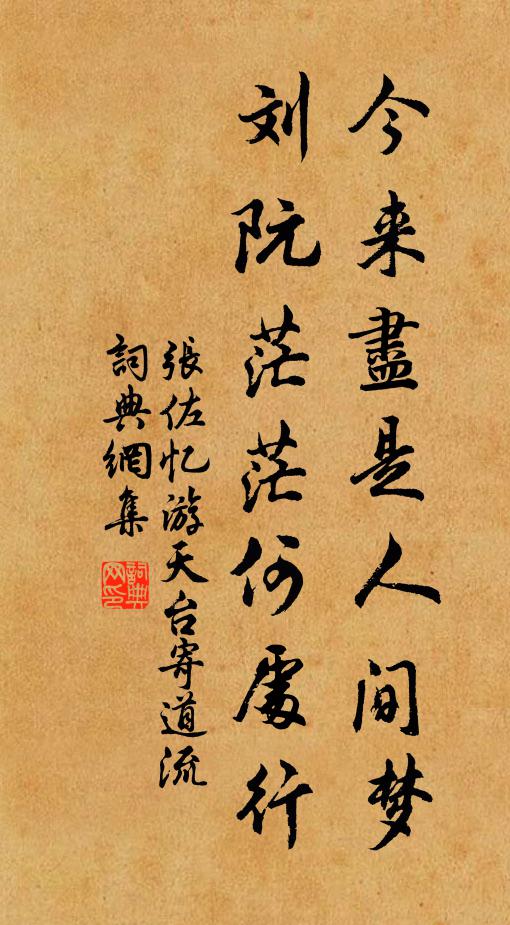 今来盡是人间梦
刘阮茫茫何處行
張佐忆游天台寄道流
詞典網集
詞典网印